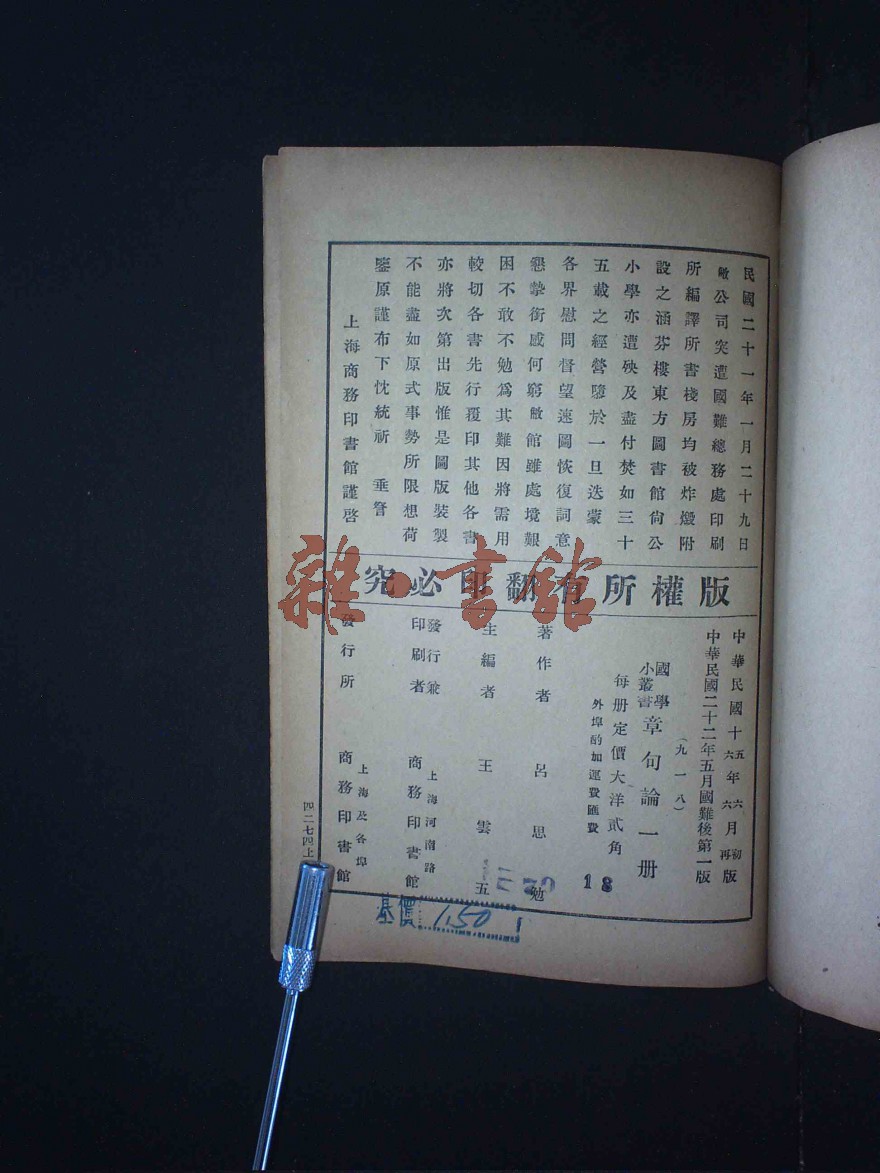 民國二十一年一月二十九日
敝公司突遭國難總務處印刷
所編譯所書棧房均被炸燬附
設之涵芬樓東方圖書館尙公
小學亦遭殃及盡付焚如三十
五載之經營隳於一旦迭蒙
各界慰問督望速圖恢復詞意
懇摯銜感何窮敝館雖處境艱
困不敢不勉爲其難因將需用
較切各書先行覆印其他各書
亦將次第出版惟是圖版裝製
不能盡如原式事勢所限想荷
鑒原謹布下忱統祈 垂詧
上海商務印書館謹啓
版權所有翻印必究
中華民國十五年六月初版
六 六 再
中華民國二十二年五月國難後第一版
(九一八)
國學小叢書 章句論一册
每册定價大洋貳角
外埠酌加運費匯費
著作者 呂思勉
主編者 王雲五
發行兼印刷者 上海河南路 商務印書館
發行所 上海及各埠 商務印書館
四二七四上
18
基價 1.50
雜·書館